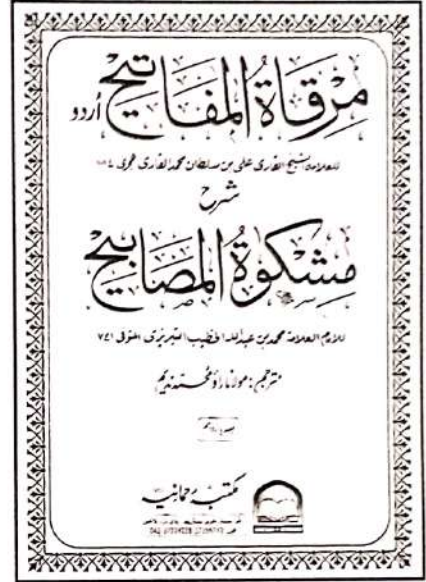 مرقاة المفاتيح اردو
للعلامة الشیخ القاری علی بن سلطان محمد القاری
شرح
مشکوة المصابیح
للامام العلامة محمد بن عبدالله الخطیب التبریزی المتوفی ٧٤١
مترجم: مولانا راؤ محمد ندیم
مکتبہ رحمانیہ